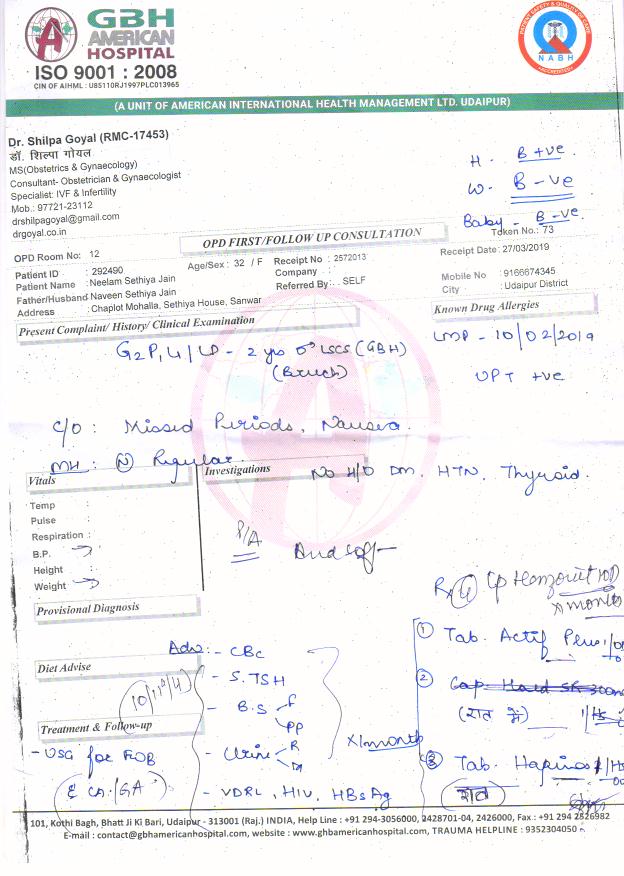 GBH
AMERICAN
HOSPITAL
ISO 9001 : 2008
CIN OF AIHML : U85110RJ1997PLC013965
PATIENT SAFETY & QUALITY OF CARE
NABH
(A UNIT OF AMERICAN INTERNATIONAL HEALTH MANAGEMENT LTD. UDAIPUR)
Dr. Shilpa Goyal (RMC-17453)
डॉ. शिल्पा गोयल
MS(Obstetrics & Gynaecology)
Consultant- Obstetrician & Gynaecologist
Specialist: IVF & Infertility
Mob.: 97721-23112
drshilpagoyal@gmail.com
drgoyal.co.in
H - B +ve
W - B -ve
Baby - B -ve
OPD FIRST/FOLLOW UP CONSULTATION
Token No.: 73
OPD Room No: 12
Patient ID : 292490
Age/Sex : 32 / F
Receipt No : 2572013
Receipt Date : 27/03/2019
Patient Name : Neelam Sethiya Jain
Company :
Father/Husband Naveen Sethiya Jain
Referred By : . SELF
Mobile No : 9166674345
Address : Chaplot Mohalla, Sethiya House, Sanwar
City : Udaipur District
Present Complaint/ History/ Clinical Examination
Known Drug Allergies
LMP - 10/02/2019
UPT +ve
G2P1L1/LD - 2 yrs LSCS (GBH)
(Breech)
C/O : Missed Periods, Nausea.
MH : (N) Regular
Vitals
Investigations
No H/O DM, HTN, Thyroid.
Temp :
Pulse :
Respiration :
B.P. :
Height :
Weight :
P/A
soft
Provisional Diagnosis
Rx
Diet Advise
Adv :- CBC
- S. TSH
- B.S F
PP
- Urine R
M
- VDRL, HIV, HBsAg
x 1 month
Treatment & Follow-up
- USG for
(GA)
① Tab. Actif Plus
② (रात में)
③ Tab.
(रात)
101, Kothi Bagh, Bhatt Ji Ki Bari, Udaipur - 313001 (Raj.) INDIA, Help Line : +91 294-3056000, 2428701-04, 2426000, Fax.: +91 294 2526982
E-mail : contact@gbhamericanhospital.com, website : www.gbhamericanhospital.com, TRAUMA HELPLINE : 9352304050